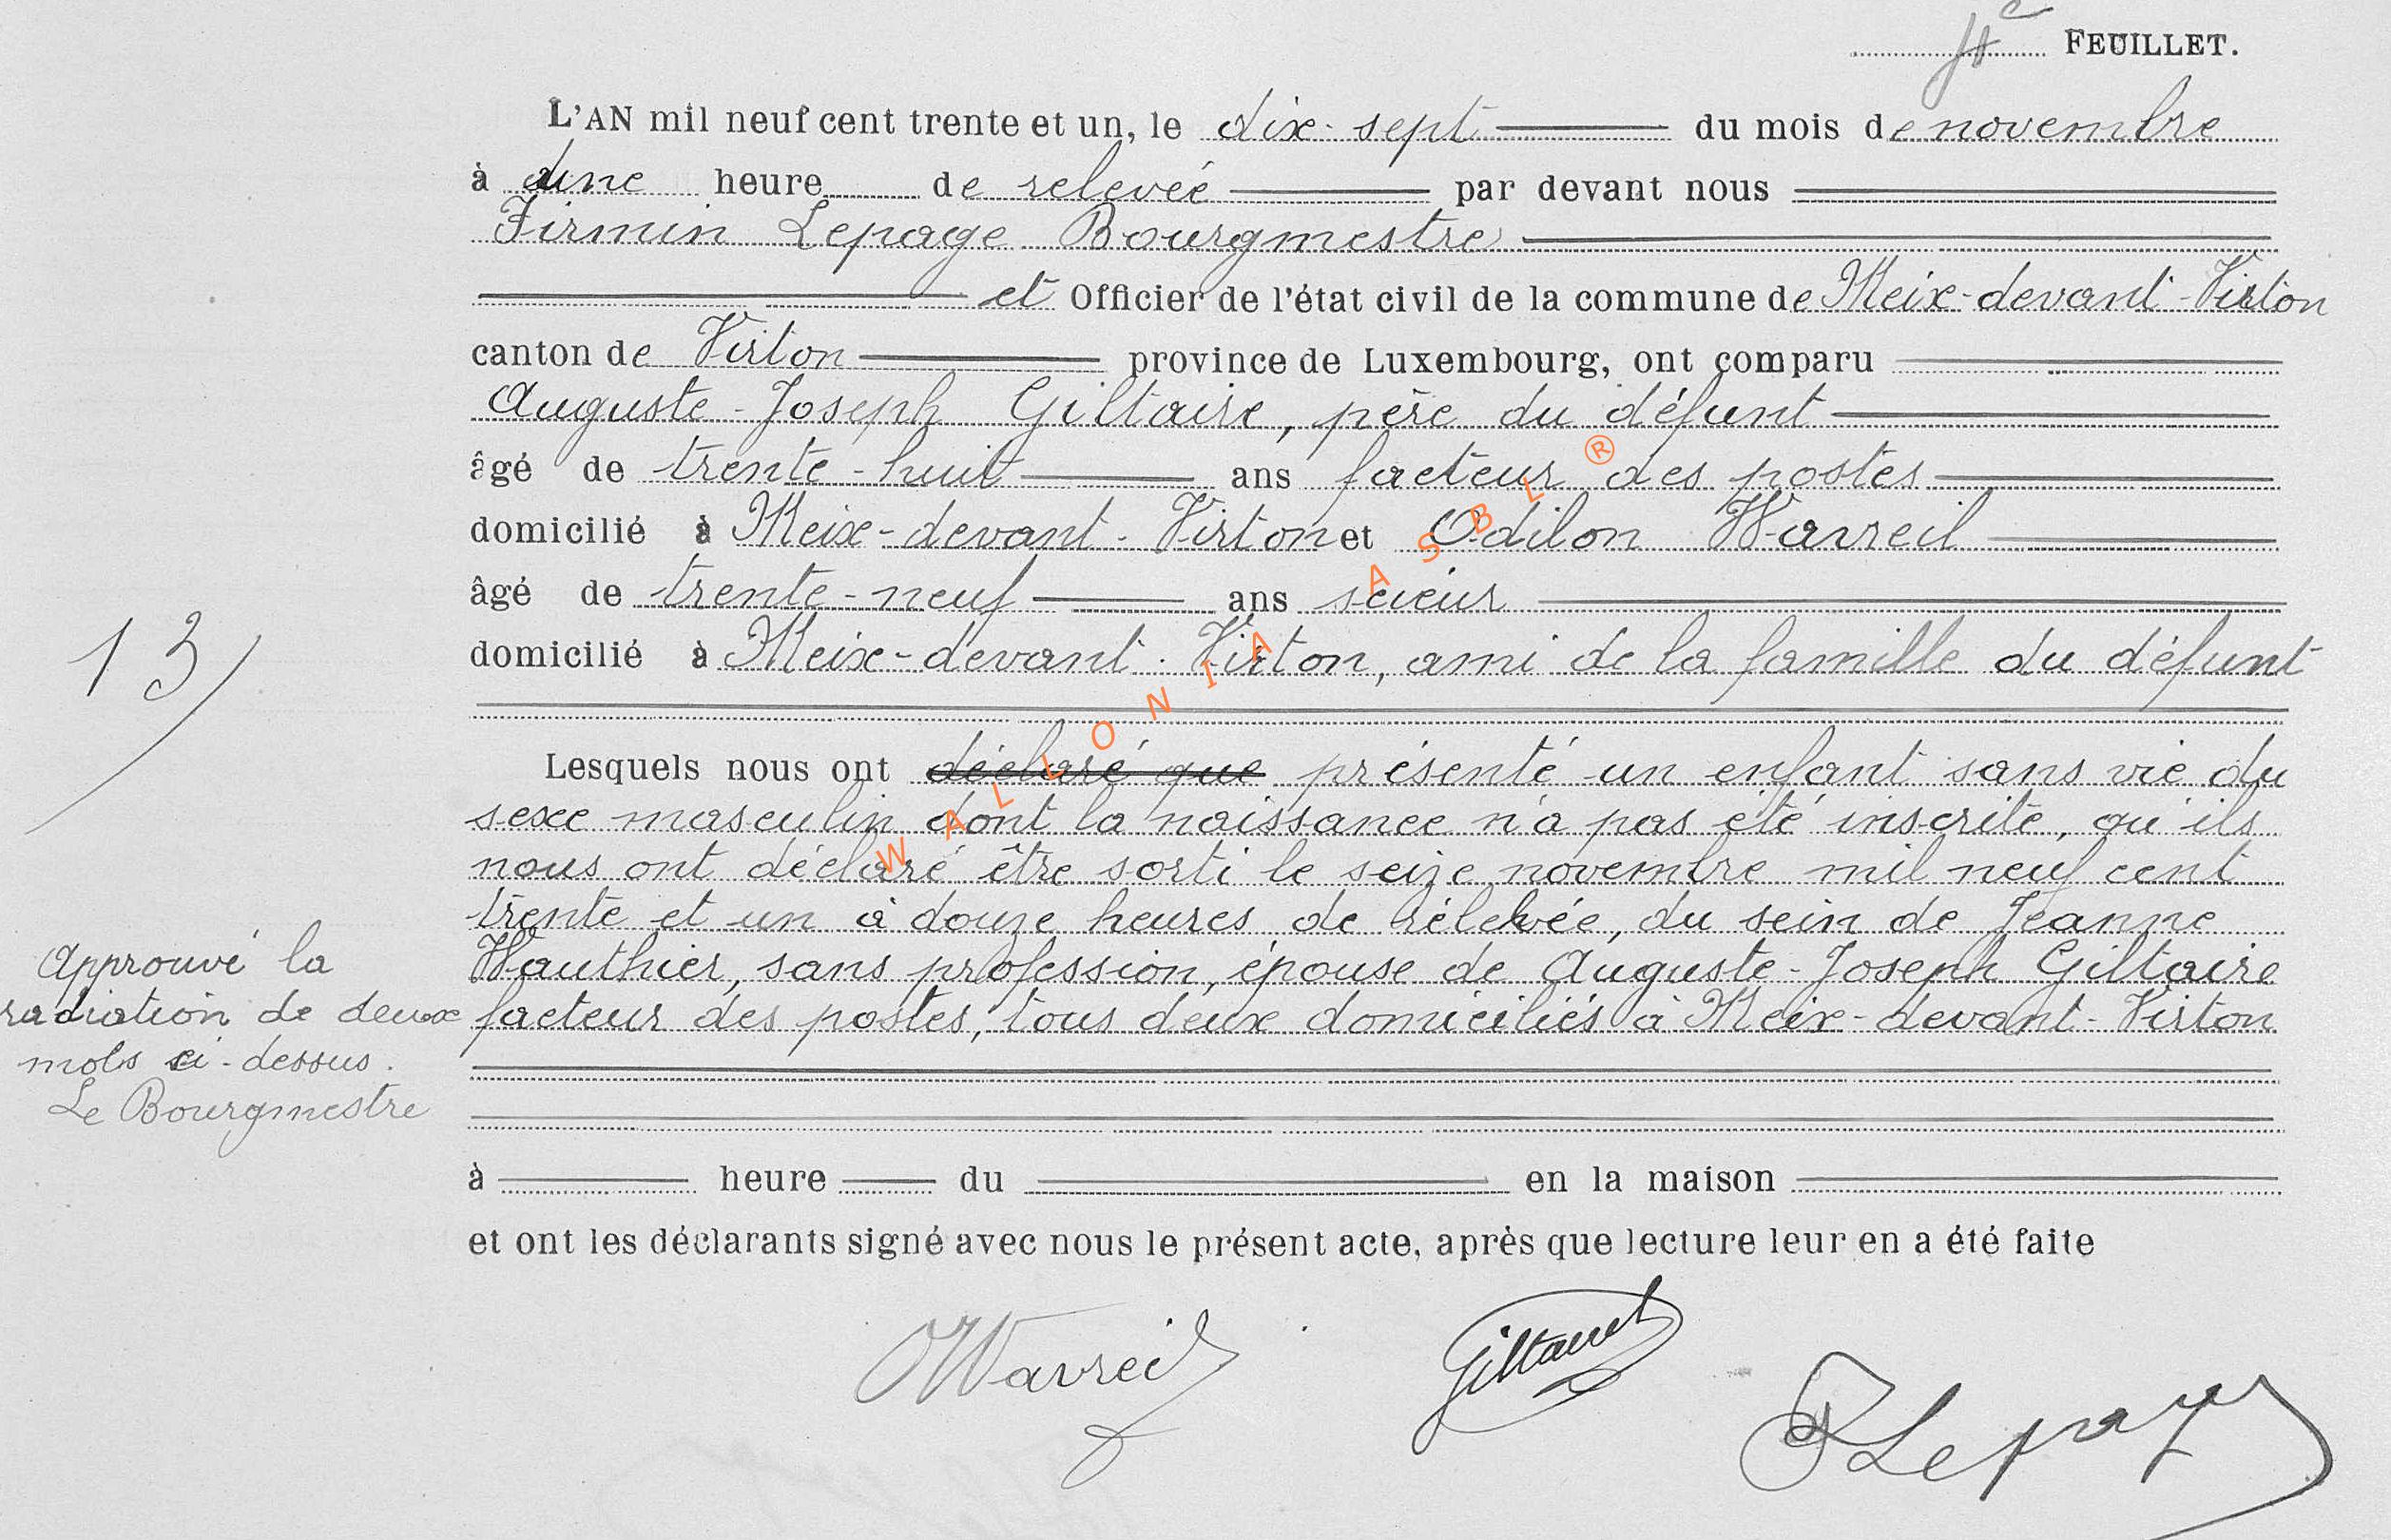 4e FEUILLET.
L'AN mil neuf cent trente et un, le dix-sept du mois de novembre
à une heure de relevée par devant nous
Firmin Lepage Bourgmestre
et Officier de l'état civil de la commune de Meix-devant-Virton
canton de Virton province de Luxembourg, ont comparu
Auguste-Joseph Giltaire, père du défunt
âgé de trente-huit ans facteur des postes
domicilié à Meix-devant-Virton et Odilon Wavreil
âgé de trente-neuf ans scieur
domicilié à Meix-devant-Virton, ami de la famille du défunt
13
Lesquels nous ont déclaré que présenté un enfant sans vie du
sexe masculin dont la naissance n'a pas été inscrite, qu'ils
nous ont déclaré être sorti le seize novembre mil neuf cent
trente et un à douze heures de relevée, du sein de Jeanne
Wauthier, sans profession, épouse de Auguste-Joseph Giltaire
facteur des postes, tous deux domiciliés à Meix-devant-Virton
Approuvé la
radiation de deux
mots ci-dessus.
Le Bourgmestre
à heure du en la maison
et ont les déclarants signé avec nous le présent acte, après que lecture leur en a été faite
OWavreil
Giltaire
FLepage
WALLONIA ASBL ®